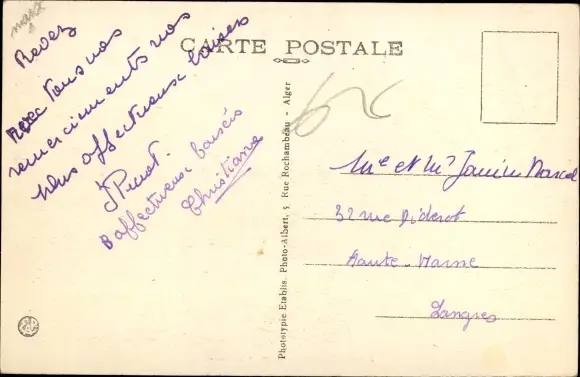 CARTE POSTALE
Recevez
Avec tous nos
remerciements nos
plus affectueux baisers
B affectueux baisers
Christiane
Phototypie Etablis. Photo-Albert, 5 Rue Rochambeau - Alger
Me et Mr Janin Marcel
32 rue Diderot
Haute-Marne
Langres